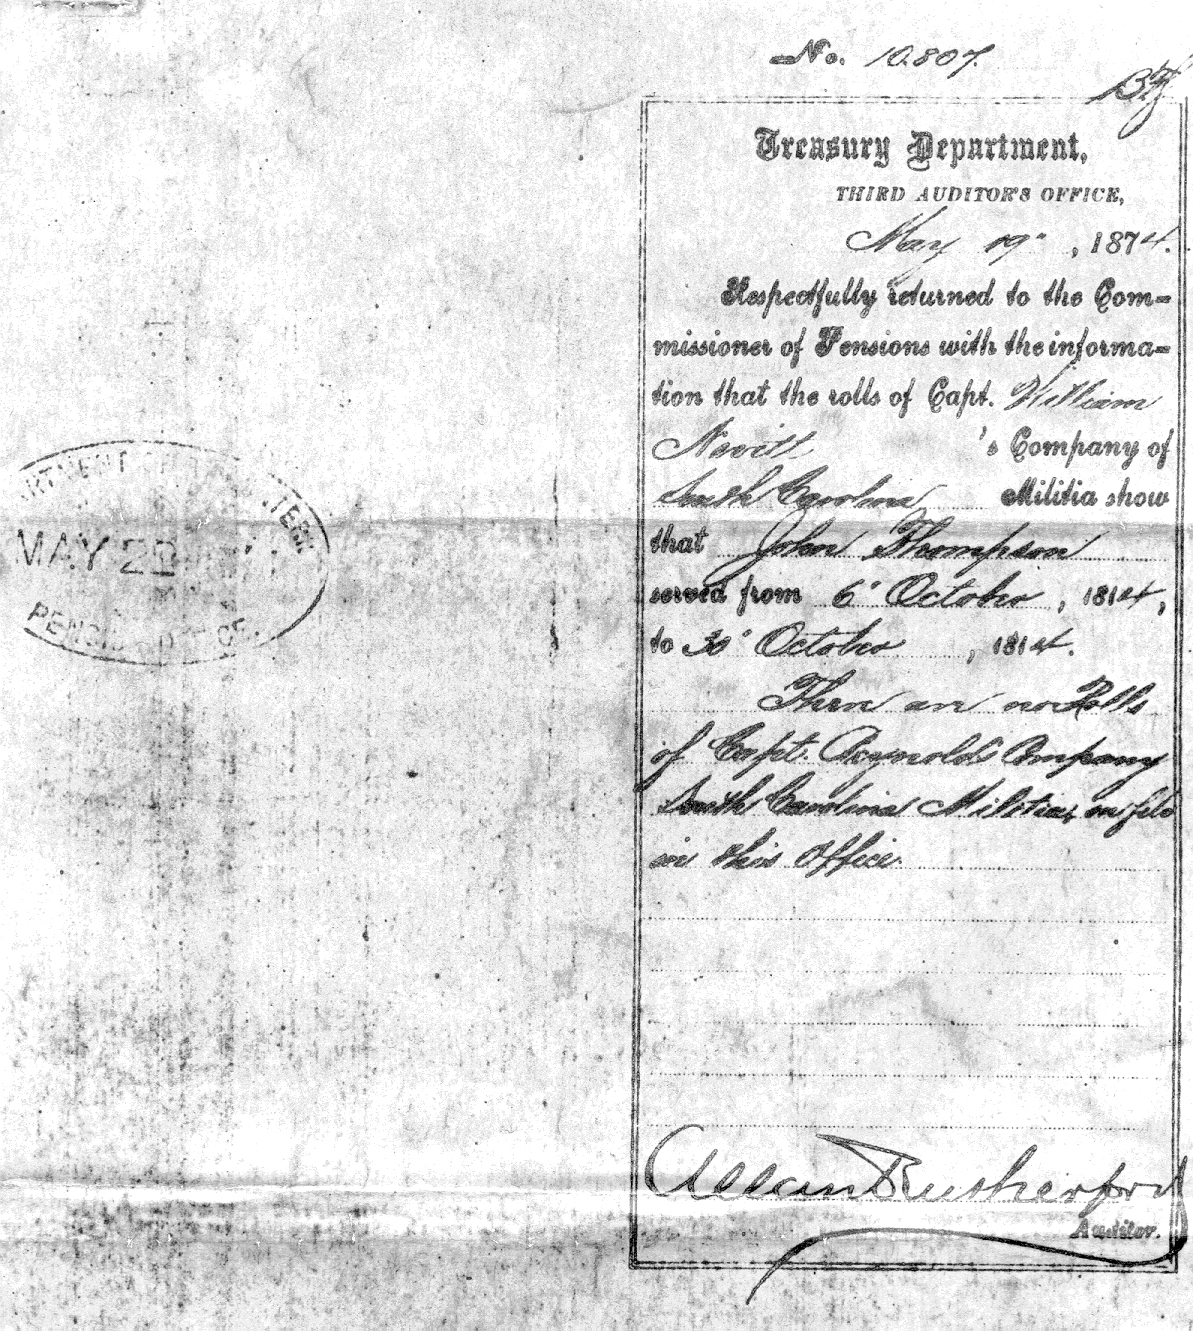 No. 10.807.
Treasury Department,
THIRD AUDITOR'S OFFICE,
May 19", 1874.
Respectfully returned to the Com-
missioner of Pensions with the informa-
tion that the rolls of Capt. William
Nevitt 's Company of
South Carolina Militia show
that John Thompson
served from 6" October, 1814,
to 30" October, 1814.
There are no Rolls
of Capt. Reynolds Company
South Carolina Militia, on file
in this Office.
Allan Rutherford
Auditor.
MAY 20
PENSION OFFICE.